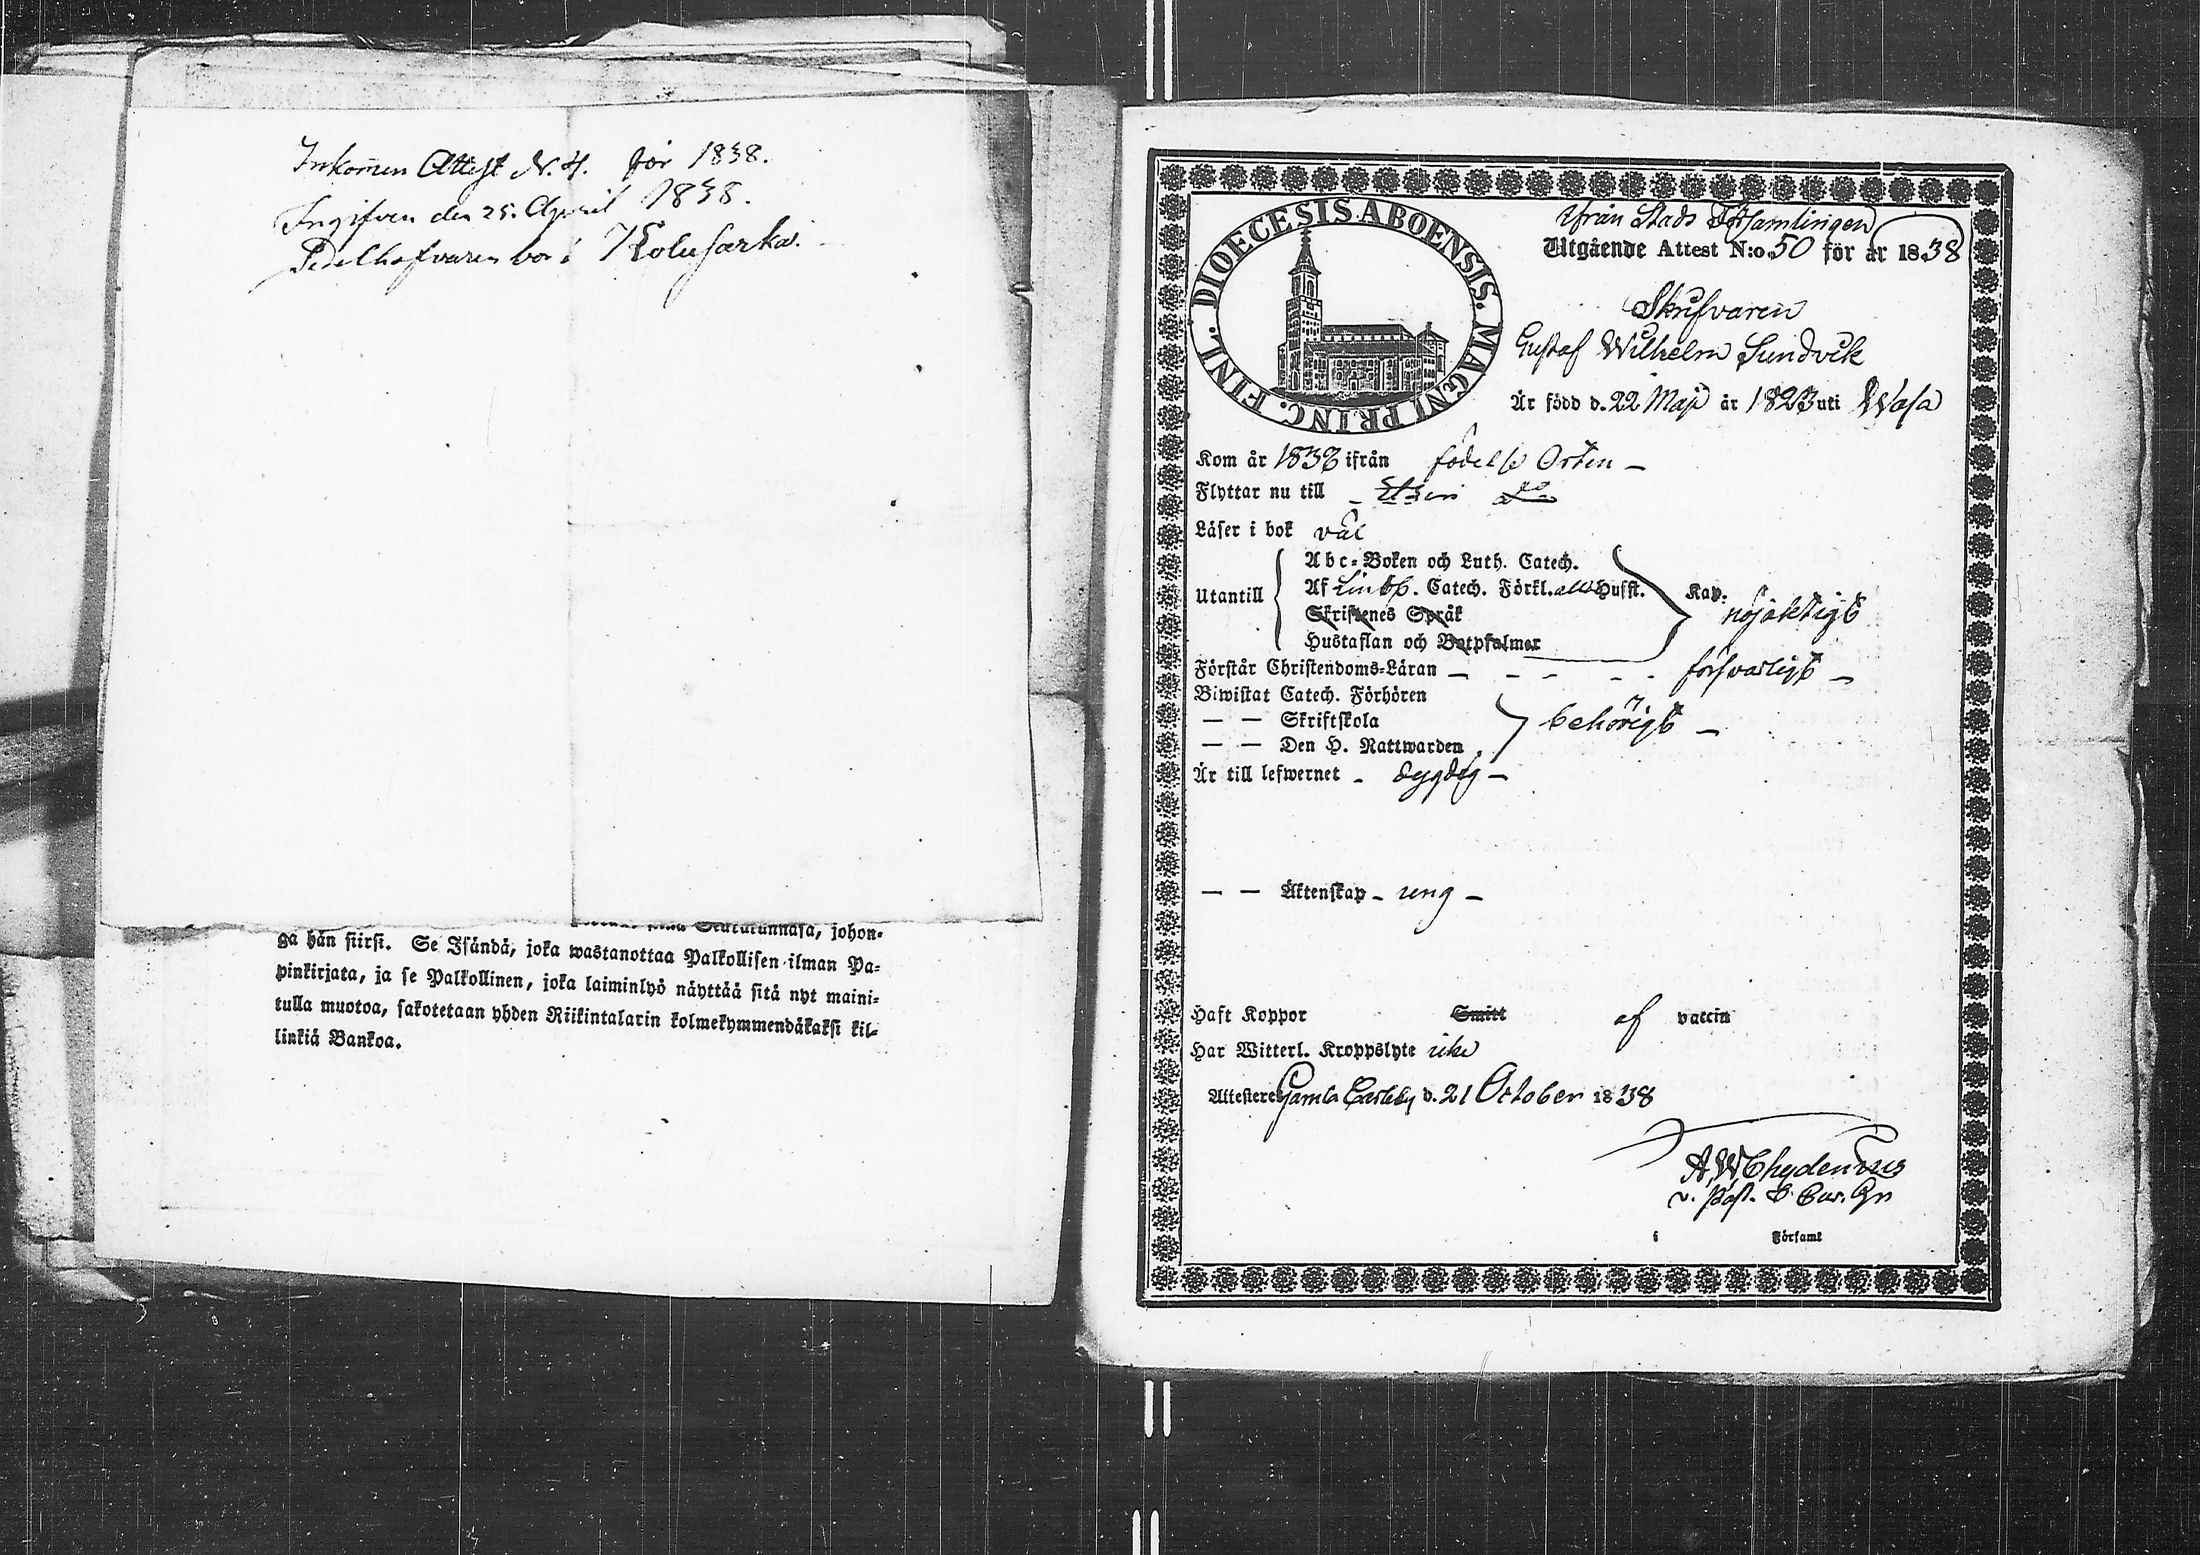 Inkommen Attest N. 4. för 1838.
Ingifven den 25. April 1838.
bor i Kolusarka.
johon-
ga hän siirsi. Se Isändä, joka wastanottaa Palkollisen ilman Pa-
pinkirjata, ja se Palkollinen, joka laiminlyö näyttää sitä nyt maini-
tulla muotoa, sakotetaan yhden Riikintalarin kolmekymmendäkaksi kil-
linkiä Bankoa.
DIOECESIS ABOENSIS. MAGNI PRINC. FINL.
ifrån Stads Församlingen
Utgående Attest N:o 50 för år 1838
Skrifvaren
Gustaf Wilhelm Sundvik
Är född d. 22 Maji år 1823 uti Wasa
Kom år 1838 ifrån födelse Orten —
Flyttar nu till
Läser i bok väl
Abc-Boken och Luth. Catech.
Utantill Af Catech. Förkl. Husst. Kap.
nöjaktigt
Skriftenes Språk
Hustaflan och Botpsalmer
Förstår Christendoms-Läran — försvarligt —
Biwistat Catech. Förhören
— — Skriftskola behörigt —
— — Den H. Nattwarden
Är till lefwernet - dygdig —
— — Äktenskap - ung —
Haft Koppor Smitt af vaccin
Har Witterl. Kroppslyte icke
Attesterer Gamla Carleby d. 21 October 1838
A W Chydenius
v. Past.
i Församl